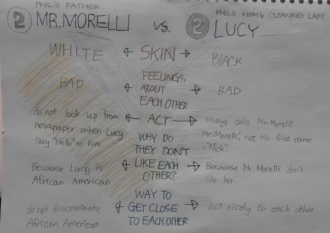 PHIL'S FATHER
② MR. MORELLI VS. ② LUCY
PHIL'S MOM'S CLEANING LADY
WHITE ← SKIN → BLACK
BAD ← FEELINGS ABOUT EACH OTHER → BAD
do not look up from
newspaper when Lucy
say "Hello" to him
← ACT →
calls Mr. Morelli
"Mr. Morelli", not his first name
"Nick"
WHY DO
THEY DON'T
LIKE EACH
OTHER?
Because Lucy is
African American
Because Mr. Morelli don't
like her
WAY TO
GET CLOSE
TO EACH OTHER
do not discriminate
African American
act nicely to each other